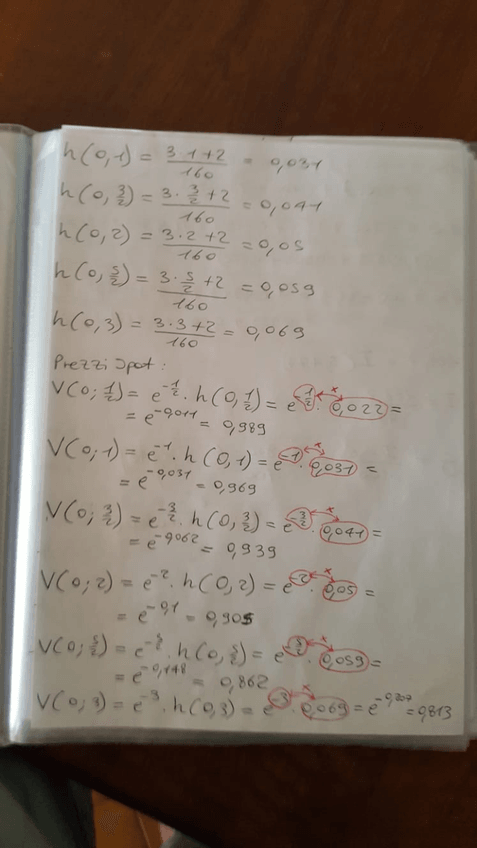 h(0,1) = (3·1+2)/160 = 0,031
h(0,3/2) = (3·3/2+2)/160 = 0,041
h(0,2) = (3·2+2)/160 = 0,05
h(0,5/2) = (3·5/2+2)/160 = 0,059
h(0,3) = (3·3+2)/160 = 0,069
Prezzi Spot:
V(0;1/2) = e^-1/2 · h(0,1/2) = e^-1/2 · 0,022 =
= e^-0,011 = 0,989
V(0;1) = e^-1 · h(0,1) = e^-1 · 0,031 =
= e^-0,031 = 0,969
V(0;3/2) = e^-3/2 · h(0,3/2) = e^-3/2 · 0,041 =
= e^-0,062 = 0,939
V(0;2) = e^-2 · h(0,2) = e^-2 · 0,05 =
= e^-0,1 = 0,905
V(0;5/2) = e^-5/2 · h(0,5/2) = e^-5/2 · 0,059 =
= e^-0,148 = 0,862
V(0;3) = e^-3 · h(0,3) = e^-3 · 0,069 = e^-0,207 = 0,813